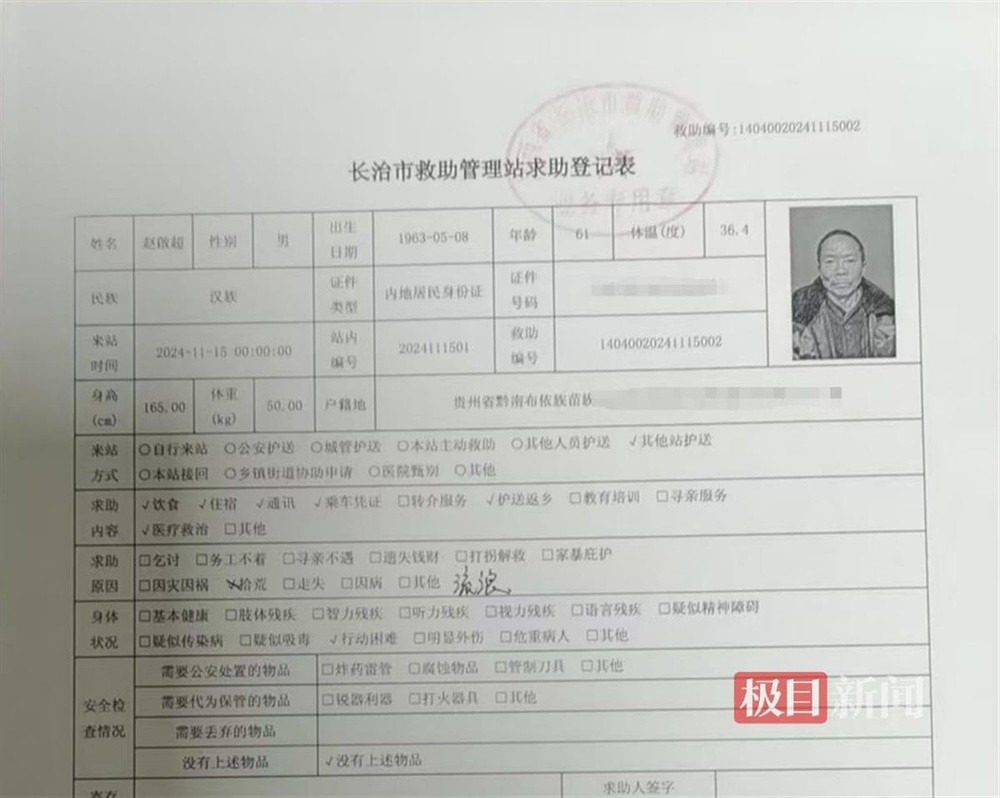 救助编号:14040020241115002
长治市救助管理站求助登记表
姓名 赵啟超 性别 男 出生日期 1963-05-08 年龄 61 体温(度) 36.4
民族 汉族 证件类型 内地居民身份证 证件号码
来站时间 2024-11-15 00:00:00 站内编号 2024111501 救助编号 14040020241115002
身高(cm) 165.00 体重(kg) 50.00 户籍地 贵州省黔南布依族苗族
来站方式 ○自行来站 ○公安护送 ○城管护送 ○本站主动救助 ○其他人员护送 √其他站护送
○本站接回 ○乡镇街道协助申请 ○医院甄别 ○其他
求助内容 √饮食 √住宿 √通讯 √乘车凭证 □转介服务 √护送返乡 □教育培训 □寻亲服务
√医疗救治 □其他
求助原因 □乞讨 □务工不着 □寻亲不遇 □遗失钱财 □打拐解救 □家暴庇护
□因灾因祸 拾荒 □走失 □因病 □其他 流浪
身体状况 □基本健康 □肢体残疾 □智力残疾 □听力残疾 □视力残疾 □语言残疾 □疑似精神障碍
□疑似传染病 □疑似吸毒 √行动困难 □明显外伤 □危重病人 □其他
安全检查情况 需要公安处置的物品 □炸药雷管 □腐蚀物品 □管制刀具 □其他
需要代为保管的物品 □锐器利器 □打火器具 □其他
需要丢弃的物品
没有上述物品 √没有上述物品
寄存 求助人签字
极目新闻